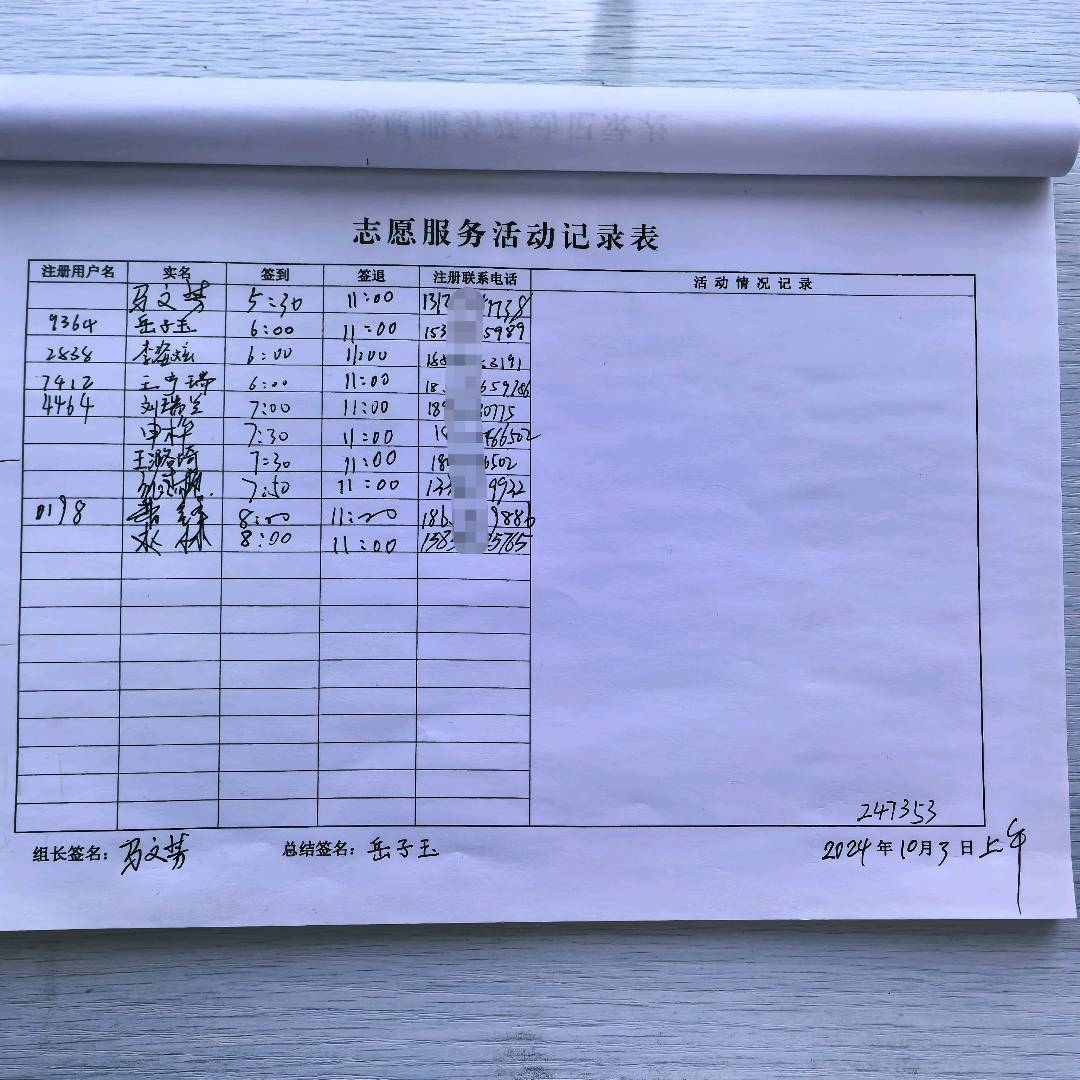 志愿服务活动记录表
注册用户名 实名 签到 签退 注册联系电话 活动情况记录
马文芳 5:30 11:00
9364 岳子玉 6:00 11:00 153 5989
2838 6:00 11:00 3191
7412 6:00 11:00 18
4464 刘瑞兰 7:00 11:00 18 0775
申梓 7:30 11:00 66502
王潞琦 7:30 11:00 18 6502
7:50 11:00 9932
0198 8:00 11:00 186 9886
水林 8:00 11:00 138 5765
247353
组长签名：马文芳 总结签名：岳子玉 2024年10月3日上午